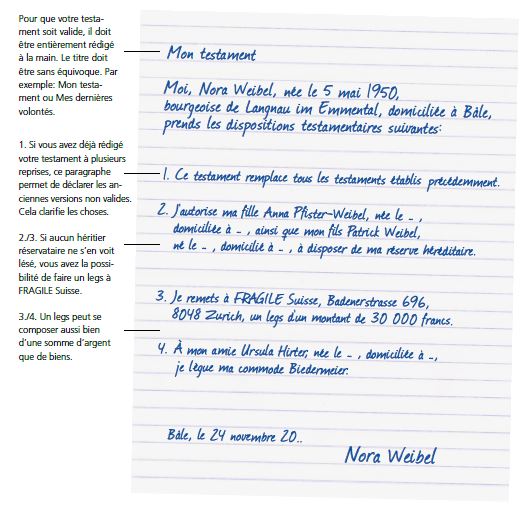 Pour que votre testa-
ment soit valide, il doit
être entièrement rédigé
à la main. Le titre doit
être sans équivoque. Par
exemple: Mon testa-
ment ou Mes dernières
volontés.
1. Si vous avez déjà rédigé
votre testament à plusieurs
reprises, ce paragraphe
permet de déclarer les an-
ciennes versions non valides.
Cela clarifie les choses.
2./3. Si aucun héritier
réservataire ne s'en voit
lésé, vous avez la possi-
bilité de faire un legs à
FRAGILE Suisse.
3./4. Un legs peut se
composer aussi bien
d'une somme d'argent
que de biens.
Mon testament
Moi, Nora Weibel, née le 5 mai 1950,
bourgeoise de Langnau im Emmental, domiciliée à Bâle,
prends les dispositions testamentaires suivantes:
1. Ce testament remplace tous les testaments établis précédemment.
2. J'autorise ma fille Anna Pfister-Weibel, née le – ,
domiciliée à – , ainsi que mon fils Patrick Weibel,
né le – , domicilié à – , à disposer de ma réserve héréditaire.
3. Je remets à FRAGILE Suisse, Badenerstrasse 696,
8048 Zurich, un legs d'un montant de 30 000 francs.
4. À mon amie Ursula Hirter, née le – , domiciliée à –,
je lègue ma commode Biedermeier.
Bâle, le 24 novembre 20..
Nora Weibel